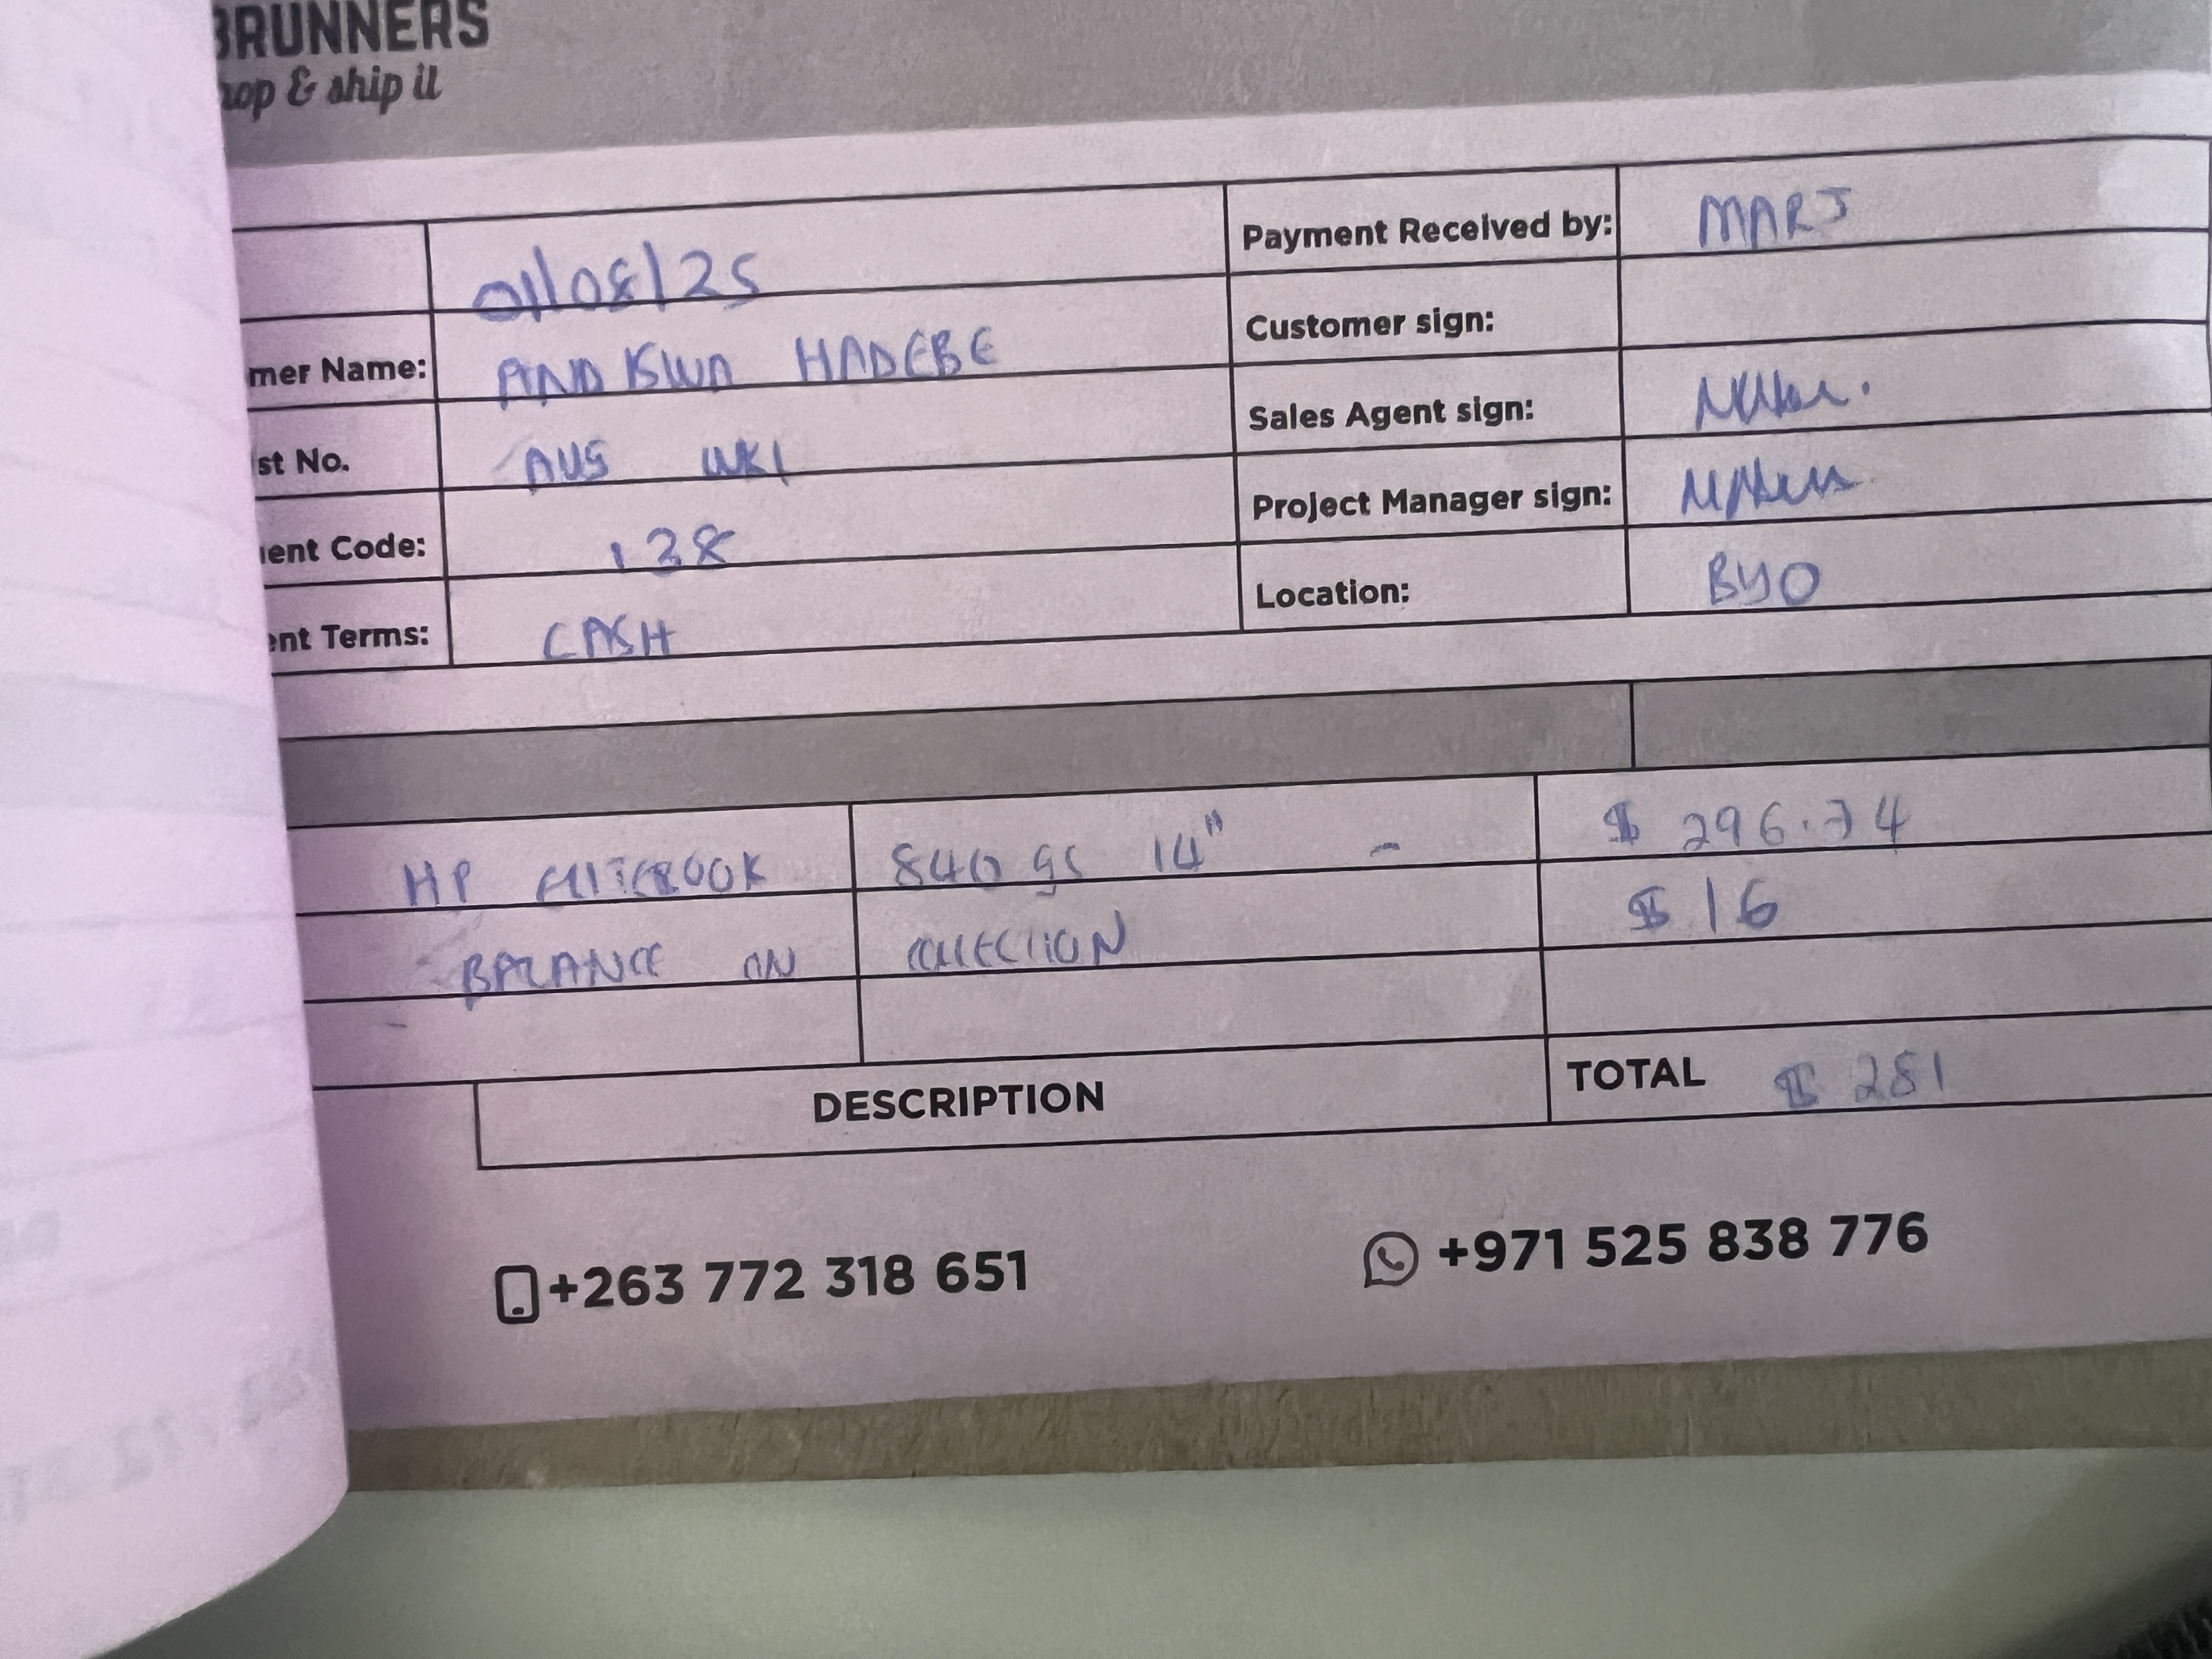 BRUNNERS
hop & ship it
01/08/25
Payment Received by: MARJ
mer Name: ANDISWA HADEBE
Customer sign:
st No. AUG WK1
Sales Agent sign:
ent Code: 128
Project Manager sign:
ent Terms: CASH
Location: BYO
HP ELITEBOOK 840 g5 14" - $ 296.74
- BALANCE ON COLLECTION $ 16
DESCRIPTION
TOTAL $ 281
+263 772 318 651
+971 525 838 776